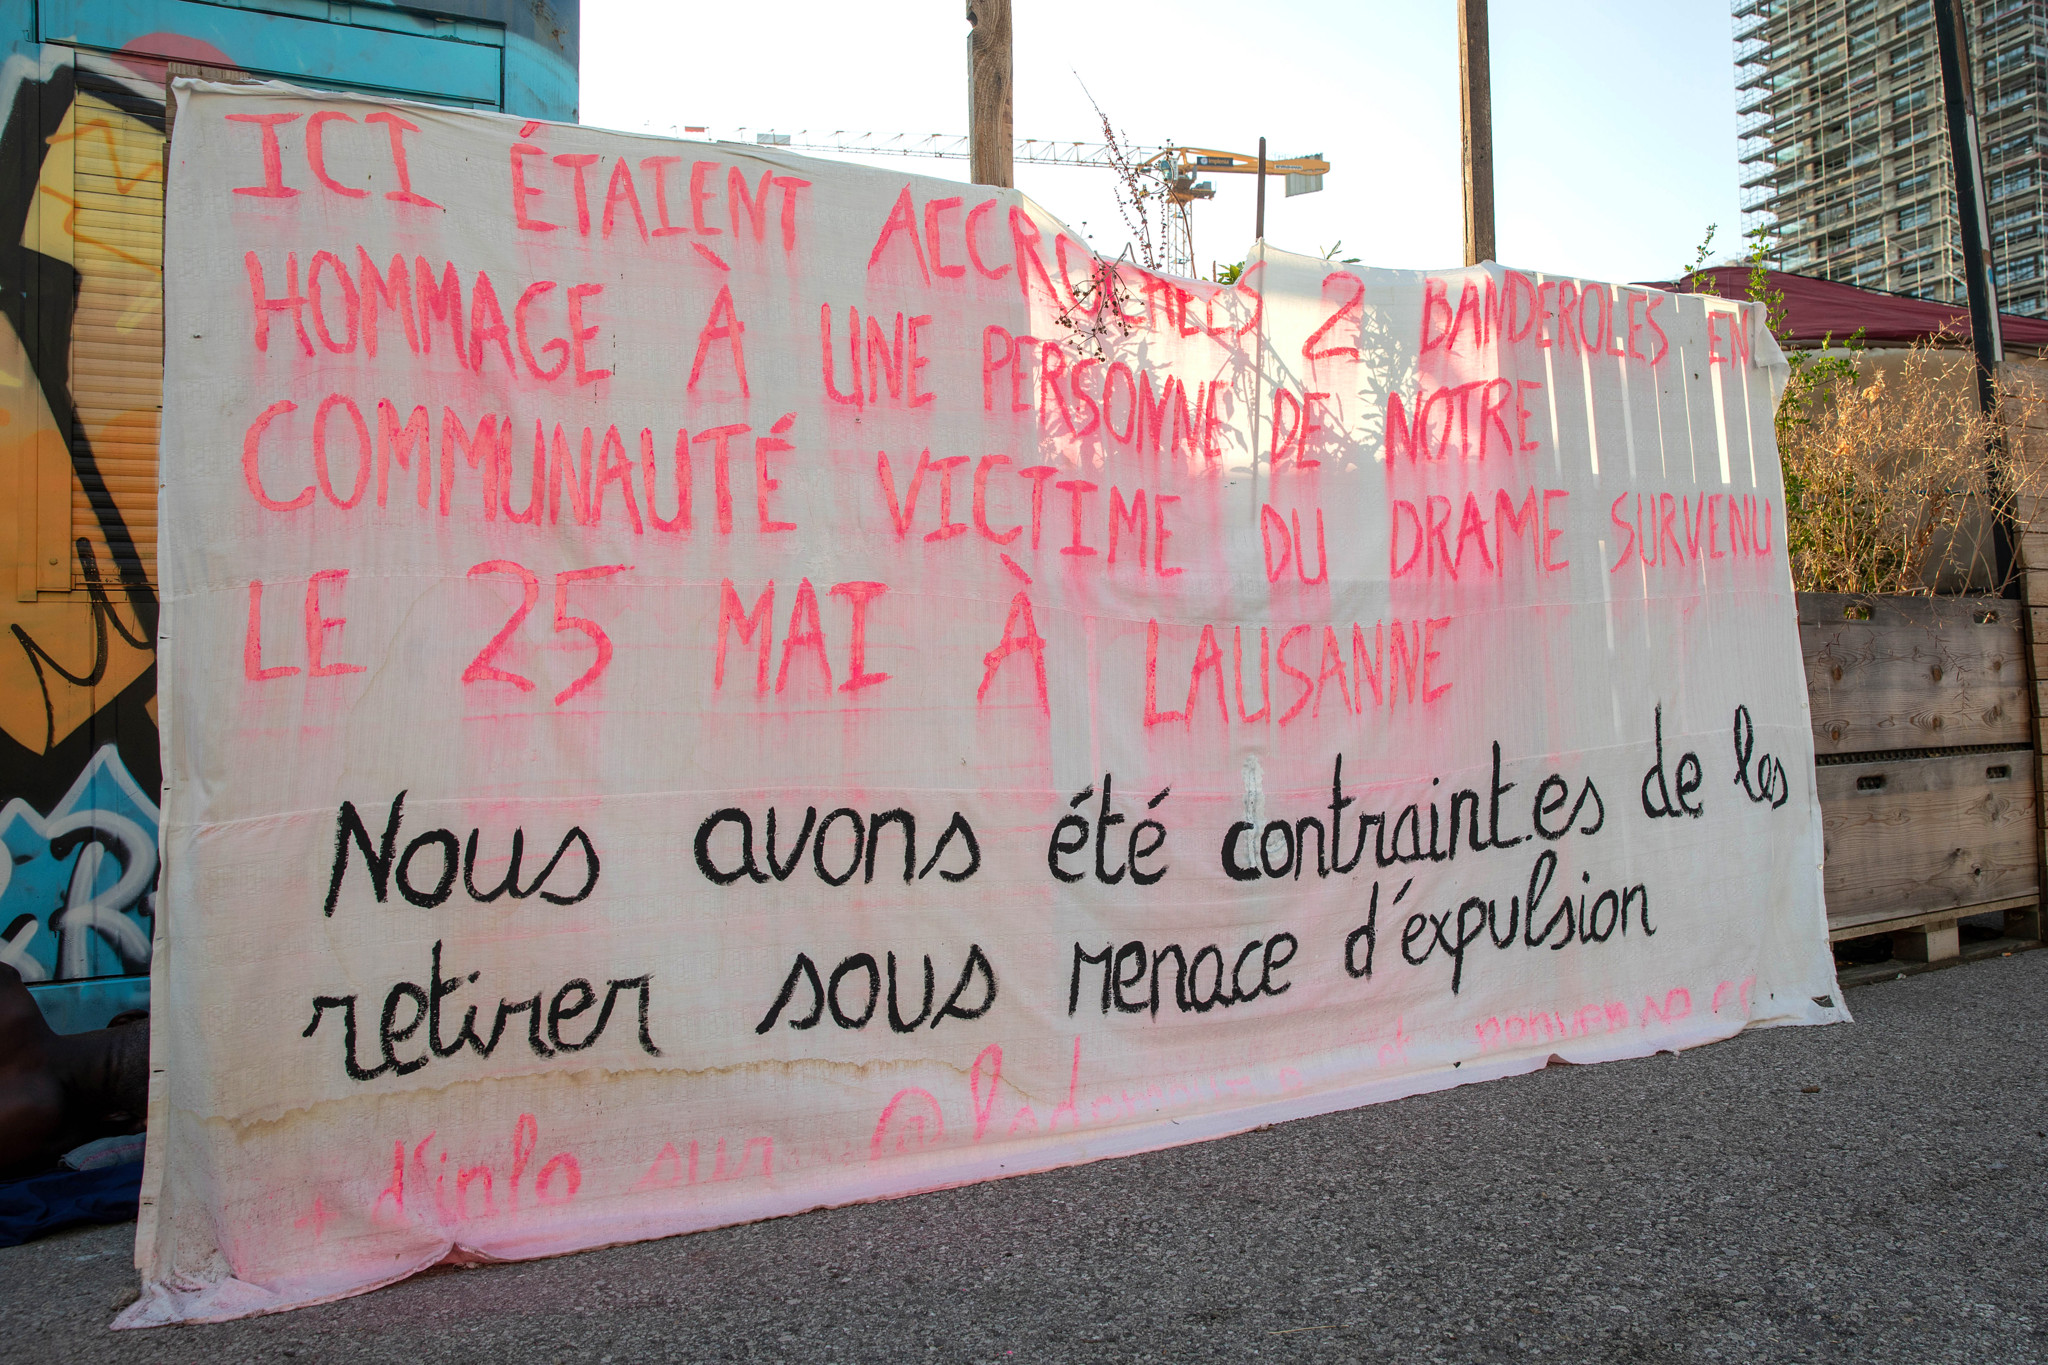 ICI ÉTAIENT ACCROCHÉES 2 BANDEROLES EN
HOMMAGE À UNE PERSONNE DE NOTRE
COMMUNAUTÉ VICTIME DU DRAME SURVENU
LE 25 MAI À LAUSANNE
Nous avons été contraintes de les
retirer sous menace d'expulsion
+ d'info sur